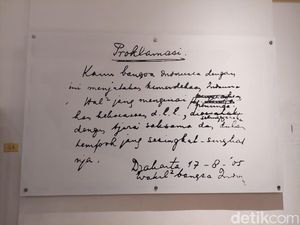 Proklamasi.
Kami bangsa Indonesia dengan
ini menjatakan kemerdekaan Indonesia.
Hal² jang mengenai
kekoeasaan d.l.l.,
dengan tjara saksama dan dalam
tempoh jang sesingkat-singkat
nja.
Djakarta, 17-8-'05
Wakil² bangsa Indon
detikcom